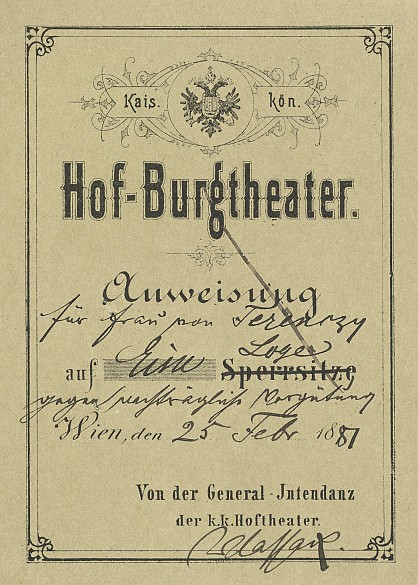 Kais. kön.
Hof-Burgtheater.
Anweisung
für Frau von
Loge
auf Eine Sperrsitze
gegen nachträgliche Vergütung
Wien, den 25 Febr 1881
Von der General-Intendanz
der k.k. Hoftheater.